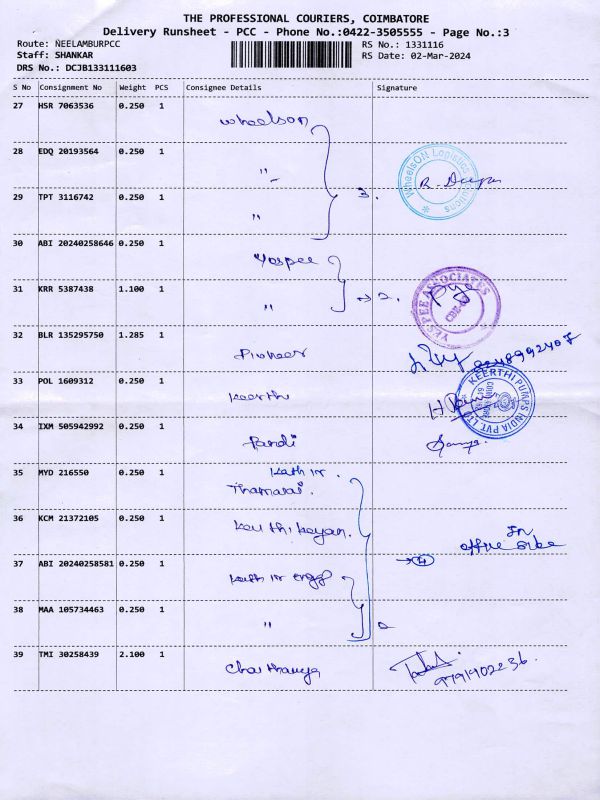 THE PROFESSIONAL COURIERS, COIMBATORE
Delivery Runsheet - PCC - Phone No.:0422-3505555 - Page No.:3
Route: NEELAMBURPCC RS No.: 1331116
Staff: SHANKAR RS Date: 02-Mar-2024
DRS No.: DCJB133111603
S No Consignment No Weight PCS Consignee Details Signature
27 HSR 7063536 0.250 1 Wheelson
28 EDQ 20193564 0.250 1 "
WheelsON Logistics Solutions
29 TPT 3116742 0.250 1 " 3.
30 ABI 20240258646 0.250 1 Yespee
31 KRR 5387438 1.100 1 " → 2.
YESPEE ASSOCIATES
32 BLR 135295750 1.285 1 Pioneer
33 POL 1609312 0.250 1 Keerthi
KEERTHI PUMPS INDIA PVT. LTD
34 IXM 505942992 0.250 1 Pandi
35 MYD 216550 0.250 1 Kathir.
Thamarai.
36 KCM 21372105 0.250 1 Keerthikeyan. In
office
37 ABI 20240258581 0.250 1 Kathir engg → 4
38 MAA 105734463 0.250 1 " 2
39 TMI 30258439 2.100 1 Chaithanya
9791902236.